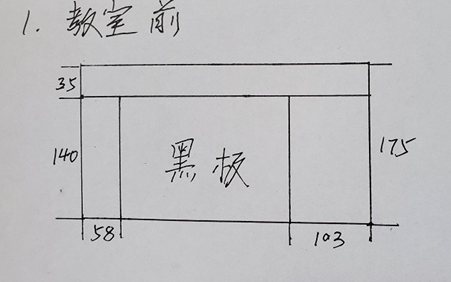 1. 教室前
35
140
黑板
175
58
103